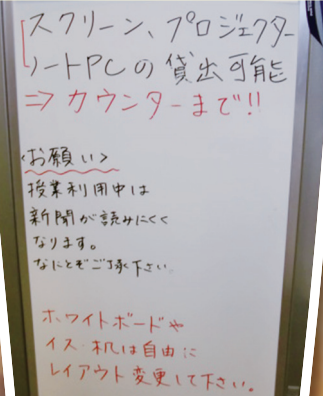 スクリーン、プロジェクター
ノートPCの貸出可能
⇒カウンターまで!!
<お願い>
授業利用中は
新聞が読みにくく
なります。
なにとぞご了承下さい。
ホワイトボードや
イス・机は自由に
レイアウト変更して下さい。